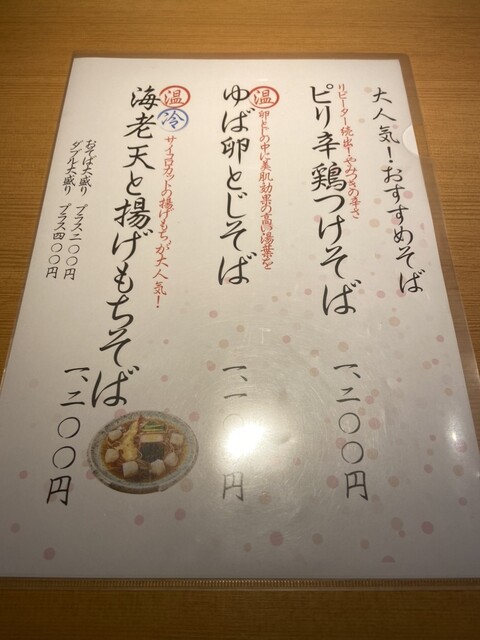 大人気！おすすめそば
リピーター続出！やみつきの辛さ
ピリ辛鶏つけそば
一、二〇〇円
温
卵とじの中に美肌効果の高い湯葉を
ゆば卵とじそば
一、一〇〇円
温
冷
サイコロカットの揚げもちが大人気！
海老天と揚げもちそば
一、二〇〇円
おそば大盛り　プラス二〇〇円
ダブル大盛り　プラス四〇〇円